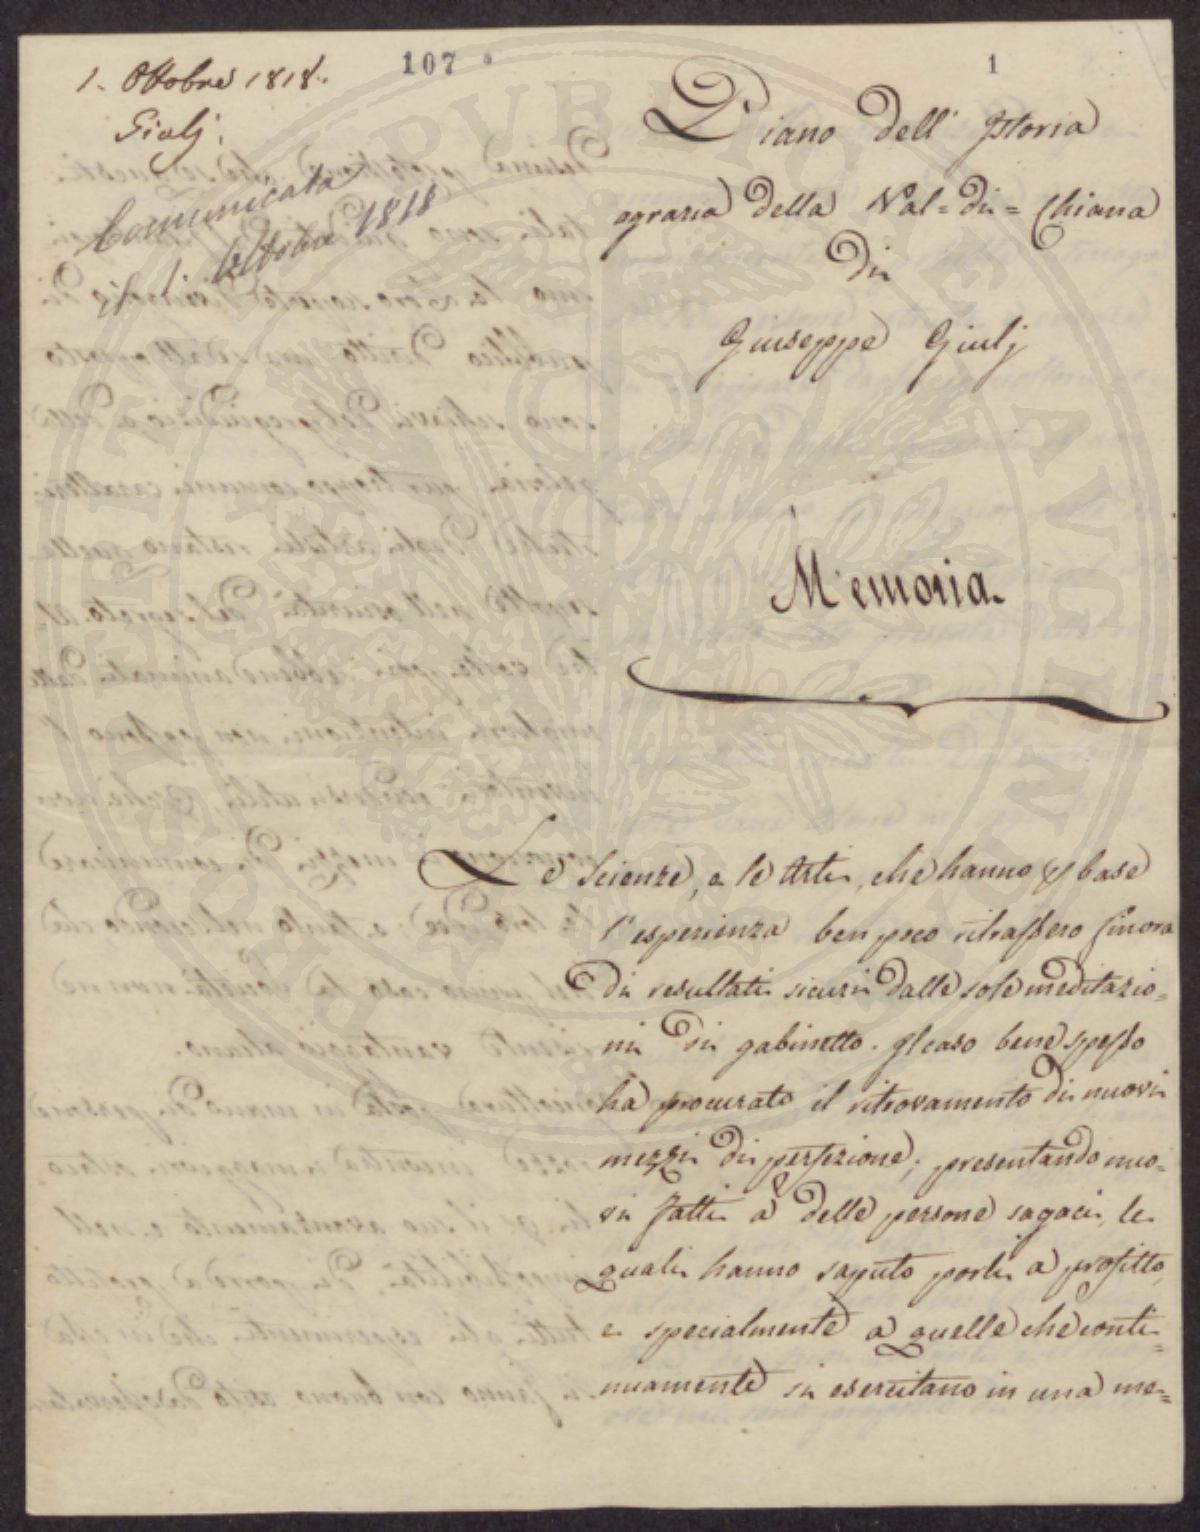 1. Ottobre 1818.
Giulj.
107
1
Comunicata
Ottobre 1818
Piano dell' Istoria
agraria della Val=di=Chiana
Di
Giuseppe Giulj
Memoria.
Le Scienze, e le Arti, che hanno p base
l'esperienza ben poco ritrassero finora
di resultati sicuri dalle sole meditazio=
ni di gabinetto. Il caso bene spesso
ha procurato il ritrovamento di nuovi
mezzi di perfezione, presentando nuo=
vi fatti a delle persone sagaci, le
quali hanno saputo porli a profitto,
e specialmente a quelle che conti=
nuamente si esercitano in una me=